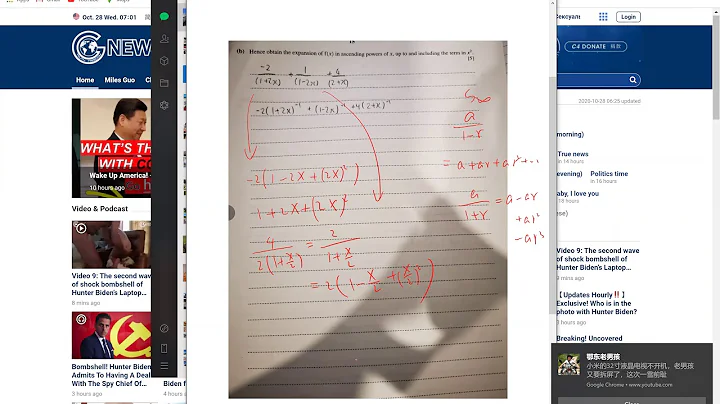 YouTube
Maps
Oct. 28 Wed, 07:01
Login
G NEW
C4 DONATE
Home
Miles Guo
2020-10-28 06:25 updated
WHAT'S TH
WITH CO
Wake Up America! -
10 hours ago
Video & Podcast
Video 9: The second wave
of shock bombshell of
Hunter Biden's Laptop...
8 mins ago
Bombshell! Hunter Biden
Admits To Having A Deal
With The Spy Chief Of...
Biden f
4 hours
(b) Hence obtain the expansion of f(x) in ascending powers of x, up to and including the term in x².
[5]
-2/(1+2x) + 1/(1-2x) + 4/(2+x)
-2(1+2x)⁻¹ + (1-2x)⁻¹ + 4(2+x)⁻¹
-2(1-2x+(2x)²)
1+2x+(2x)²
4/2(1+x/2) = 2/1+x/2
= 2(1-x/2+(x/2)²)
S∞
a/1-r
= a+ar+ar²+..
a/1+r = a-ar
+ar²
-ar³
morning)
True news
in 14 hours
evening)
Politics time
in 16 hours
baby, I love you
Video 9: The second wave
of shock bombshell of
Hunter Biden's Laptop...
【Updates Hourly‼️】
Exclusive! Who is in the
photo with Hunter Biden?
3 hours ago
Breaking! Uncovered
鄂东老男孩
小米的32寸液晶电视不开机，老男孩
又要拆屏了，这次一雪前耻
Google Chrome • www.youtube.com
Close